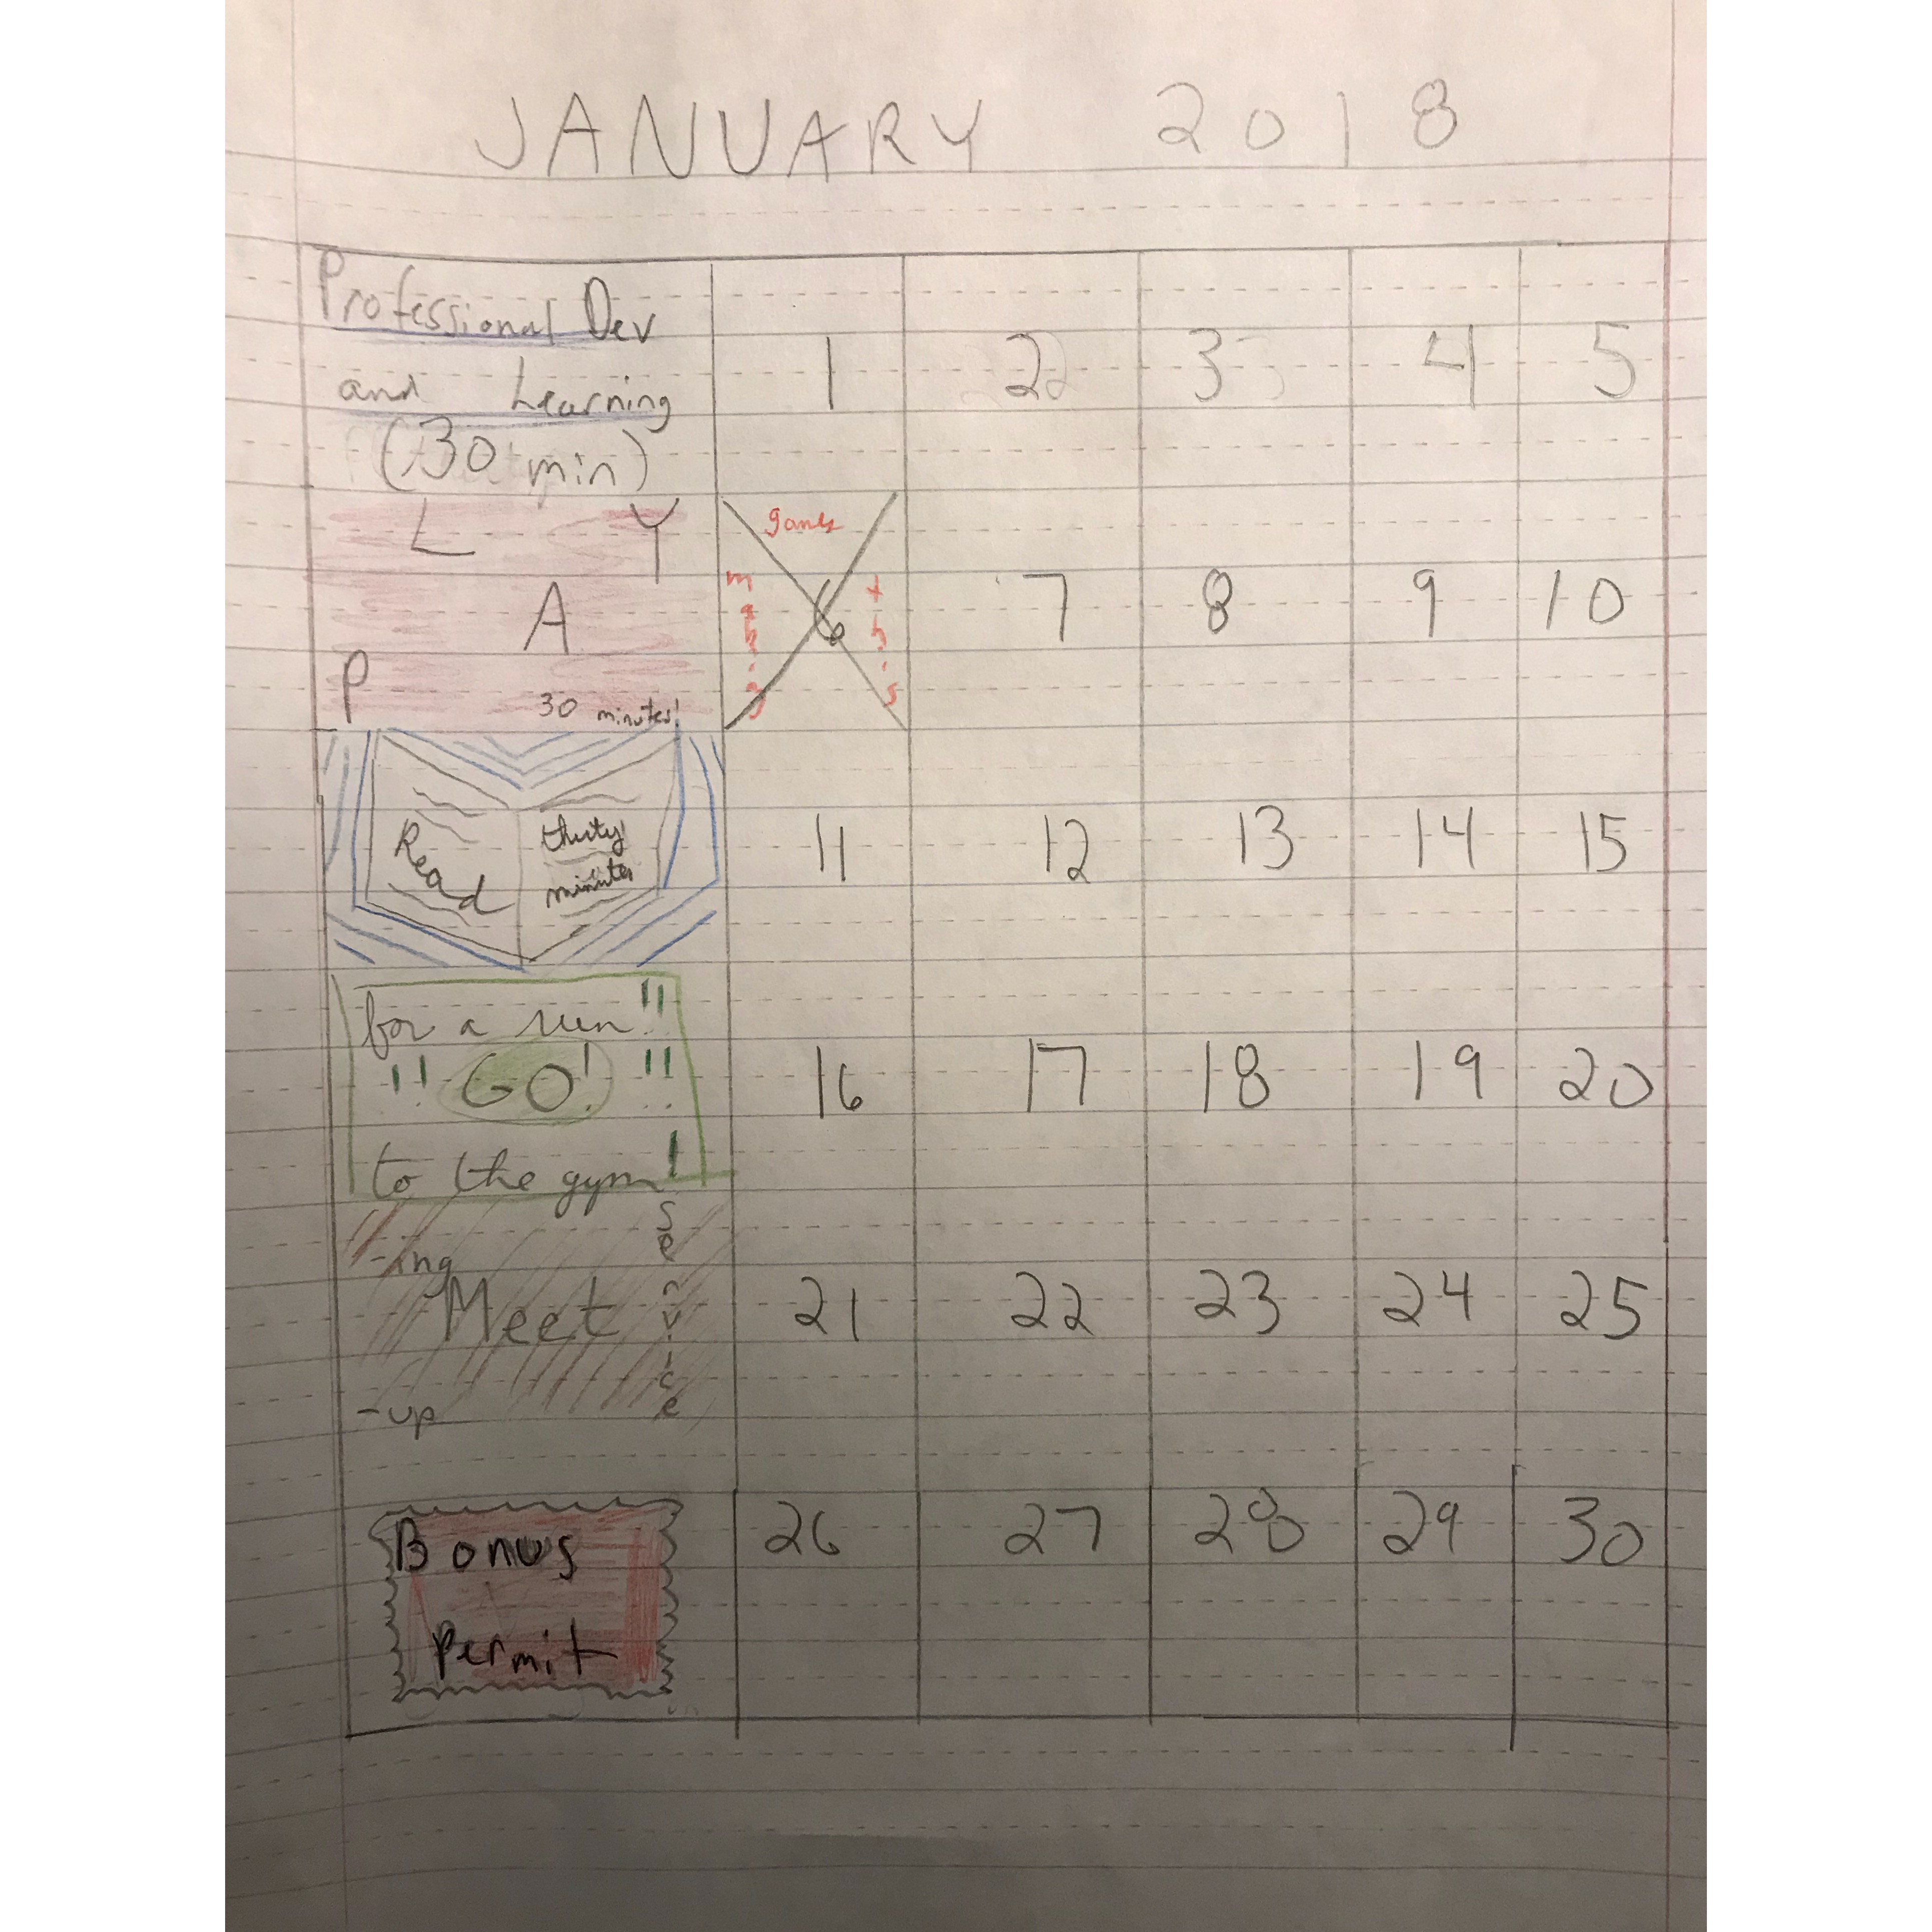 JANUARY 2018
Professional Dev
and Learning
(30 min)
1 2 3 4 5
PLAY
30 minutes!
games
making
this
6 7 8 9 10
Read
thirty
minutes
11 12 13 14 15
for a run!!
!! GO! !!
to the gym!
16 17 18 19 20
-ing
Meet
-up
service
21 22 23 24 25
Bonus
Permit
26 27 28 29 30